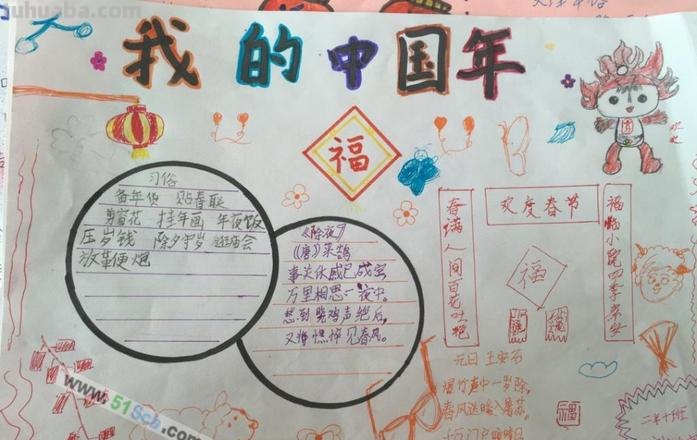 tuhuaba.com
我的中国年
福
习俗
备年货 贴春联
剪窗花 挂年画 年夜饭
压岁钱 除夕守岁 逛庙会
放革便炮
《除夜》
(唐)来鹄
事关休戚已成空
万里相思一夜中。
愁到晓鸡声绝后,
又将憔悴见春风。
欢度春节
春满人间百花吐艳
福临小院四季常安
福
元日 王安石
爆竹声中一岁除,
春风送暖入屠苏。
千门万户曈曈日
福
二年十班
www.51Sch.com